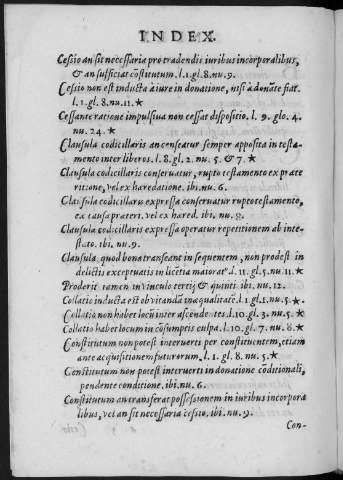 INDEX.
Cessio an sit necessaria pro tradendis iuribus incorporalibus,
& an sufficiat cōstitutum. l. 1. gl. 8. nu. 9.
Cessio non est inducta à iure in donatione, nisi à donāte fiat.
l. 1. gl. 8. nu. 11. ★
Cessante ratione impulsiua non cessat dispositio. l. 9. glo. 4.
nu. 24. ★
Clausula codicillaris an censeatur semper apposita in testa-
mento inter liberos. l. 8. gl. 2. nu. 5. & 7. ★
Clausula codicillaris conseruatur, rupto testamento ex præte
ritione, vel exhæredatione. ibi. nu. 6.
Clausula codicillaris expressa conseruatur rupto testamento,
ex causa præteri. vel ex hæred. ibi. nu. 8.
Clausula codicillaris expressa operatur repetitionem ab inte-
stato. ibi. nu. 9.
Clausula, quod bona transeant in sequentem, non prodest in
delictis exceptuatis in licētia maiorat⁹. l. 11. gl. 5. nu. 11. ★
Proderit tamen in vinculo tertij & quinti. ibi. nu. 12.
Collatio inducta est ob vitandā inæqualitatē. l. 1 gl. 1. nu. 5. ★
Collatio non habet locū inter ascendētes. l. 10. gl. 3. nu. 5. ★
Collatio habet locum in cōsumptis culpa. l. 10. gl. 7. nu. 8. ★
Constitutum non potest interuerti per constituentem, etiam
ante acquisitionem futurorum. l. 1. gl. 8. nu. 5. ★
Constitutum non potest interuerti in donatione cōditionali,
pendente conditione. ibi. nu. 6.
Constitutum an transferat possessionem in iuribus incorpora
libus, vel an sit necessaria cessio. ibi. nu. 9.
Con-